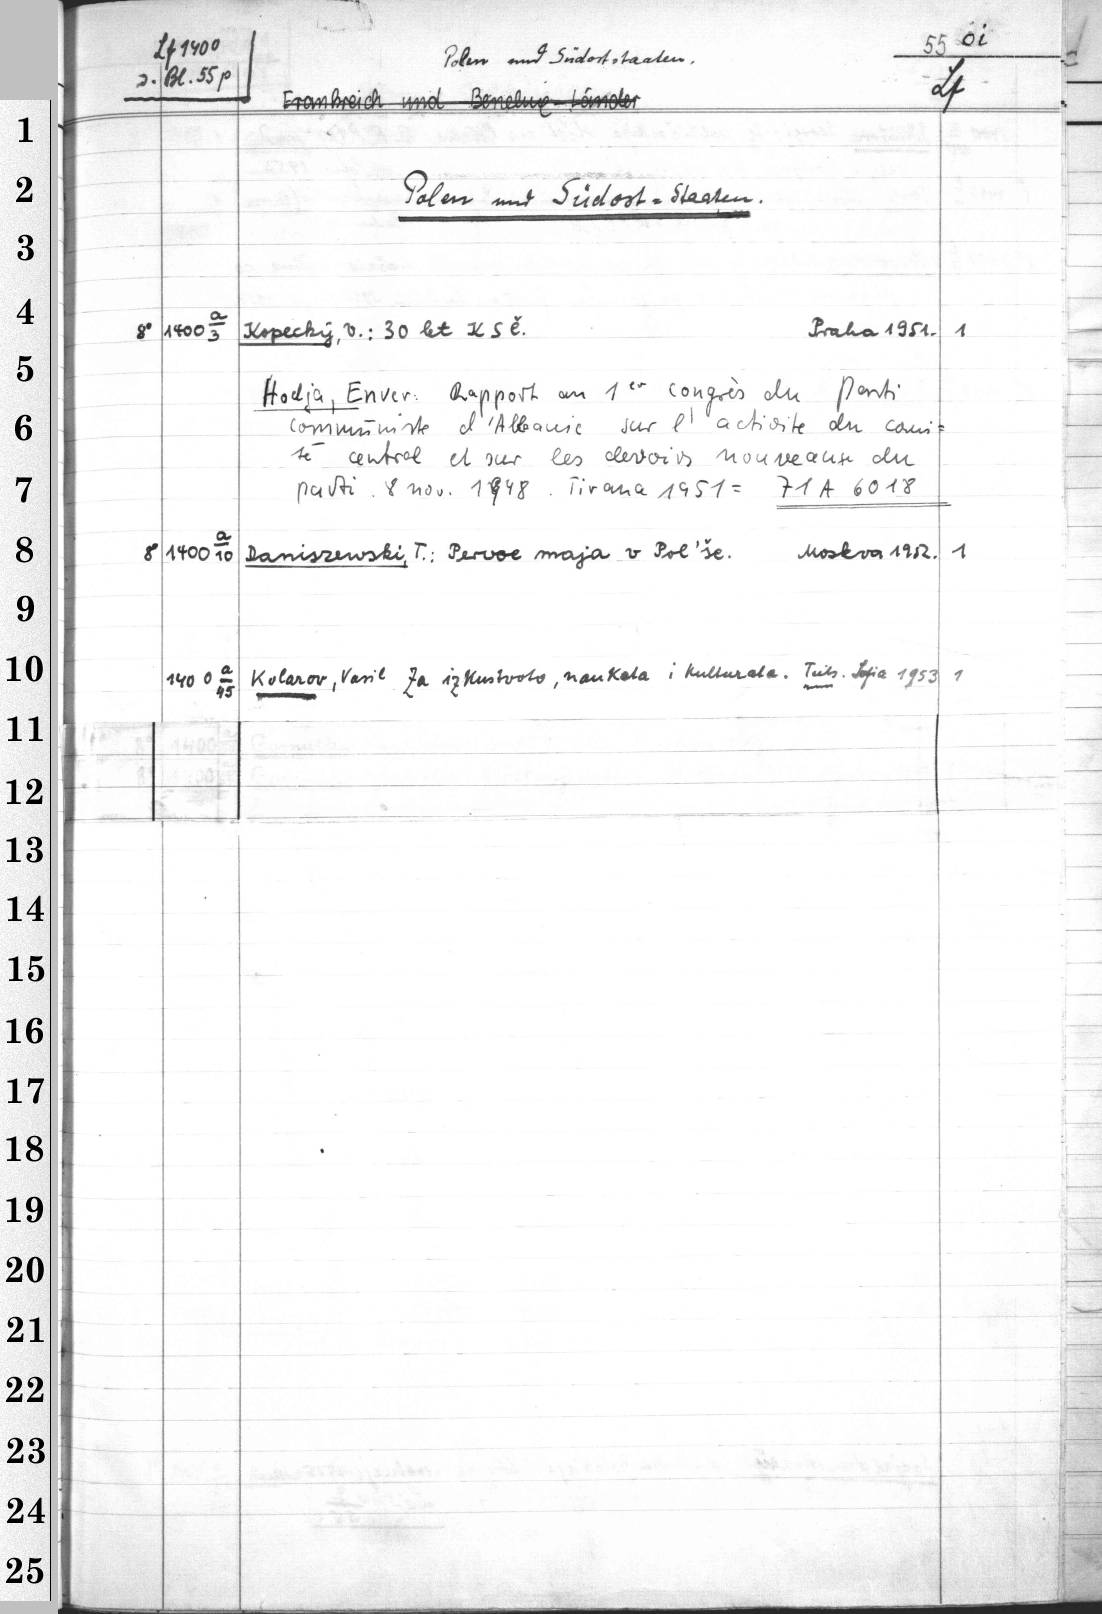 Lf 1400
s. Bl. 55p
Polen und Südoststaaten.
55 oi
Lf
Frankreich und Benelux-Länder
Polen und Südost=Staaten.
8° 1400 a/3 Kopecký, V.: 30 let KSČ. Praha 1951. 1
Hodja, Enver: Rapport au 1er congrès du Parti
communiste d'Albanie sur l'activite du comi=
té central et sur les devoirs nouveaux du
parti. 8 nov. 1948. Tirana 1951 = 71 A 6018
8° 1400 a/10 Daniszewski, T.: Pervoe maja v Pol'še. Moskva 1952. 1
1400 a/45 Kolarov, Vasil Za izkustvoto, naukata i kulturata. Sofia 1953 1
1
2
3
4
5
6
7
8
9
10
11
12
13
14
15
16
17
18
19
20
21
22
23
24
25